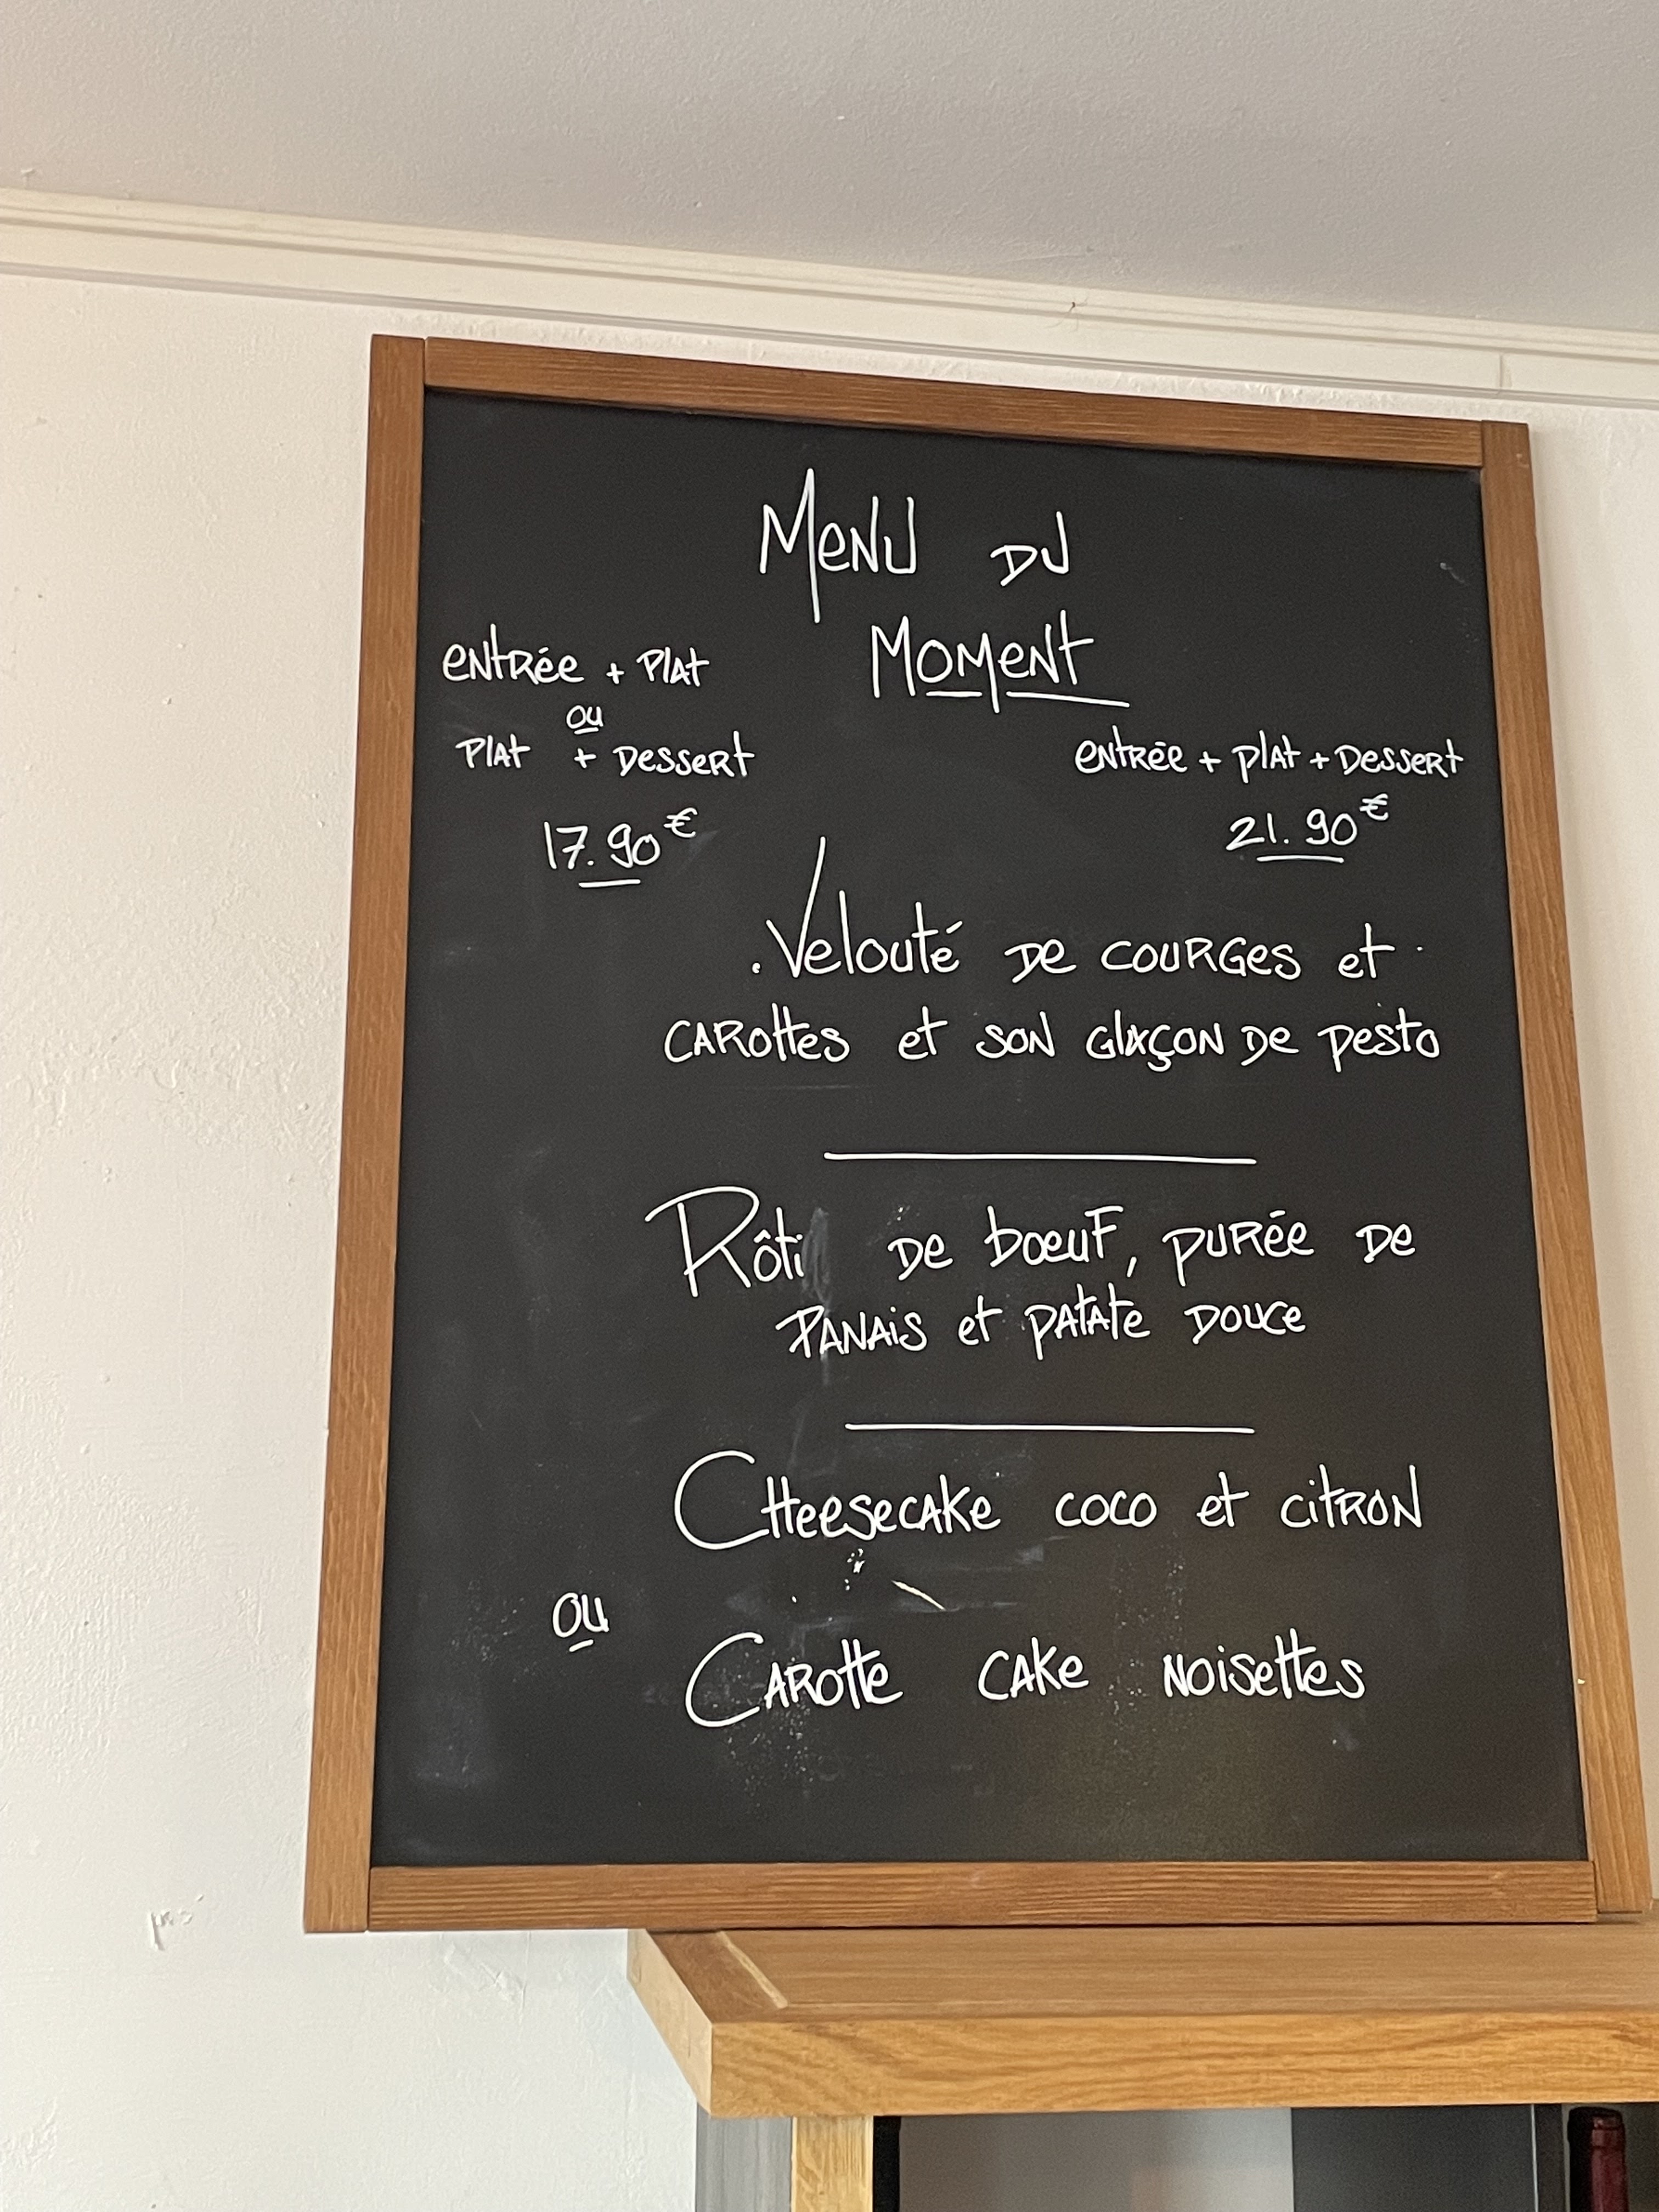 Menu du
Moment
entrée + plat
ou
plat + Dessert
17.90€
entrée + plat + Dessert
21.90€
. Velouté de courges et
carottes et son glaçon de pesto
Rôti de boeuf, purée de
panais et patate douce
Cheesecake coco et citron
ou
Carotte cake noisettes